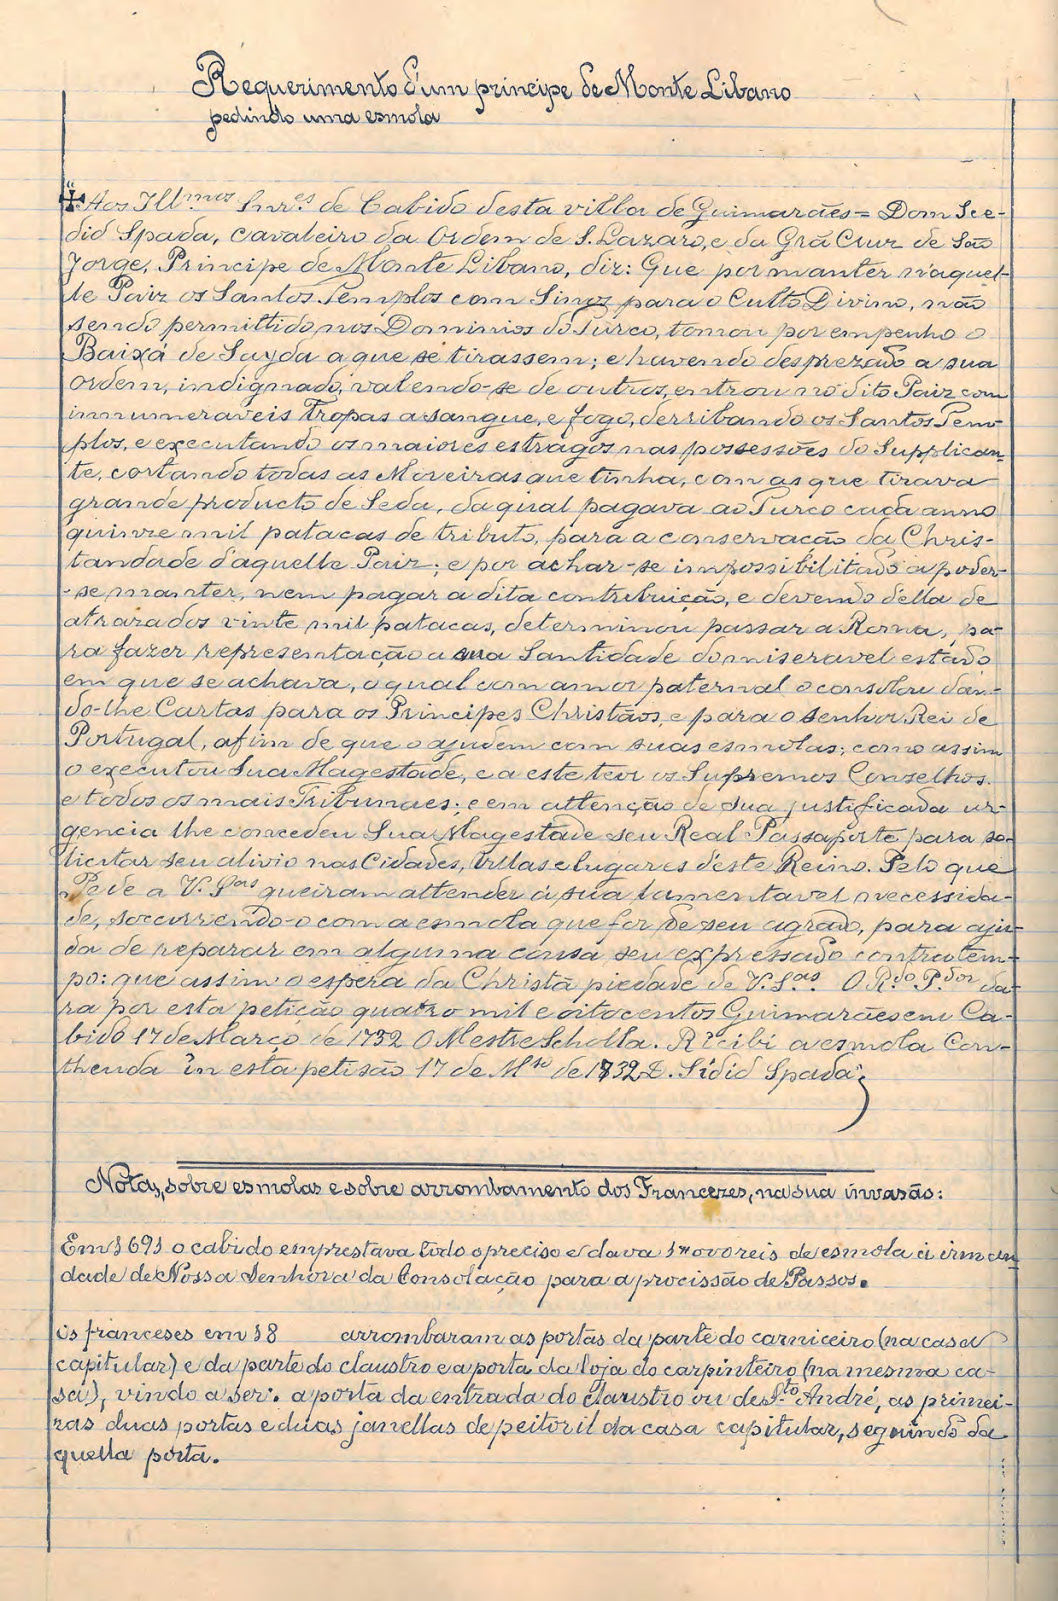 Requerimento d'um principe de Monte Libano
pedindo uma esmola
Aos Illmos Snres de Cabido desta villa de Guimarães = Dom Sce-
did Spada, cavaleiro da Ordem de S. Lazaro, e da Grã Cruz de São
Jorge, Principe de Monte Libano, diz: Que por manter n'aquel-
le Paiz os Santos Templos com Sinos para o Culto Divino, não
sendo permittido nos Dominios do Turco, tomou por empenho o
Baixá de Sayda a que se tirassem; e havendo desprezado a sua
ordem, indignado, valendo-se de outros, entrou no dito Paiz com
innumeraveis Tropas a sangue, e fogo, derribando os Santos Tem-
plos, e executando os maiores estragos nas possessões do Supplican-
te, cortando todas as Moreiras que tinha, com as que tirava
grande producto de Seda, da qual pagava ao Turco cada anno
quinze mil patacas de tributo, para a conservação da Chris-
tandade d'aquelle Paiz; e por achar-se impossibilitado a poder-
-se manter, nem pagar a dita contribuição, e devendo d'ella de
atrazados vinte mil patacas, determinou passar a Roma, pa-
ra fazer representação a sua Santidade do miseravel estado
em que se achava, o qual com amor paternal o consolou dan-
do-lhe Cartas para os Principes Christãos, e para o senhor Rei de
Portugal, afim de que o ajudem com suas esmolas; como assim
o executou Sua Magestade, e a este teor os Supremos Conselhos
e todos os mais Tribunaes; e em attenção de sua justificada ur-
gencia lhe concedeu Sua Magestade seu Real Passaporte para so-
licitar seu alivio nas Cidades, Villas e lugares d'este Reino. Pelo que
Pede a V. Sas queiram attender á sua lamentavel necessida-
de, soccorrendo-o com a esmola que for de seu agrado, para aju-
da de reparar em alguma cousa seu expressado contratem-
po: que assim o espera da Christã piedade de V. Sas. O R.do P.dor da-
ra por esta petição quatro mil e oitocentos Guimarães em Ca-
bido 17 de Março de 1732 O Mestre Scholla. Ricibi a esmola Con-
thenda in esta petisão 17 de Mço de 1732 D. Sidid Spada
Notas, sobre esmolas e sobre arrombamento dos Francezes, na sua invasão:
Em 1691 o cabido emprestava todo o preciso e dava 1 novo reis de esmola á irman-
dade de Nossa Senhora da Consolação para a procissão de Passos.
Os franceses em 18 arrombaram as portas da parte do carniceiro (na casa
capitular) e da parte do claustro e a porta da loja do carpinteiro (na mesma ca-
sa), vindo a ser: a porta da entrada do claustro ou de Sto André, as primei-
ras duas portas e duas janellas de peitoril da casa capitular, seguindo da
quella porta.